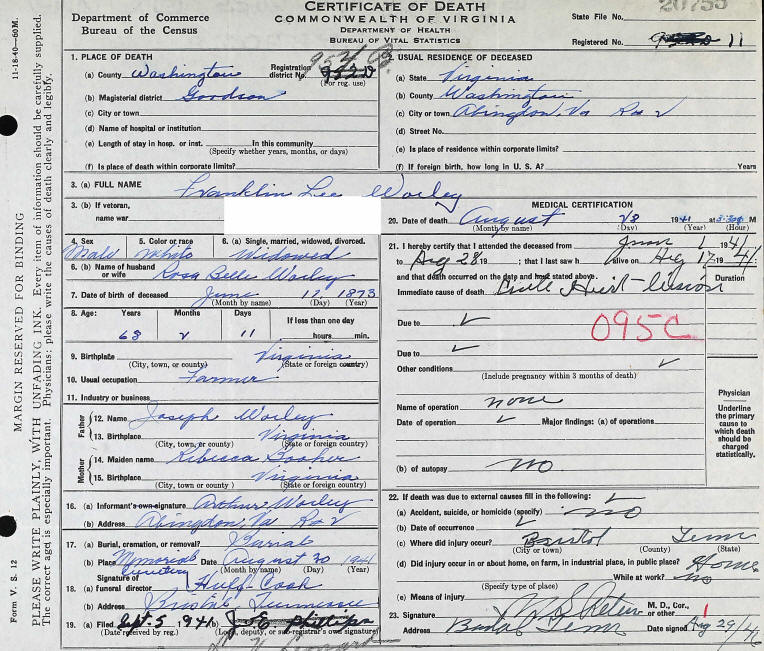 CERTIFICATE OF DEATH
COMMONWEALTH OF VIRGINIA
DEPARTMENT OF HEALTH
BUREAU OF VITAL STATISTICS
Department of Commerce
Bureau of the Census
20755
State File No.
Registered No. 11
11-18-40-50M.
MARGIN RESERVED FOR BINDING
PLEASE WRITE PLAINLY, WITH UNFADING INK. Every item of information should be carefully supplied.
The correct age is especially important. Physicians: please write the causes of death clearly and legibly.
Form V. S. 12
1. PLACE OF DEATH
(a) County Washington Registration district No.
(For reg. use)
(b) Magisterial district Goodson
(c) City or town
(d) Name of hospital or institution
(e) Length of stay in hosp. or inst. In this community
(Specify whether years, months, or days)
(f) Is place of death within corporate limits?
2. USUAL RESIDENCE OF DECEASED
(a) State Virginia
(b) County Washington
(c) City or town Abingdon, Va
(d) Street No.
(e) Is place of residence within corporate limits?
(f) If foreign birth, how long in U. S. A? Years
3. (a) FULL NAME Franklin Lee Worley
3. (b) If veteran,
name war
4. Sex 5. Color or race 6. (a) Single, married, widowed, divorced.
Male White Widowed
6. (b) Name of husband or wife Rosa Belle Worley
7. Date of birth of deceased June 17 1873
(Month by name) (Day) (Year)
8. Age: Years Months Days If less than one day
68 2 11 hours min.
9. Birthplace Virginia
(City, town, or county) (State or foreign country)
10. Usual occupation Farmer
11. Industry or business
Father
12. Name Joseph Worley
13. Birthplace Virginia
(City, town, or county) (State or foreign country)
Mother
14. Maiden name Rebecca Booher
15. Birthplace Virginia
(City, town or county) (State or foreign country)
16. (a) Informant's own signature Arthur Worley
(b) Address Abingdon, Va
17. (a) Burial, cremation, or removal? Burial
(b) Place Memorial Cemetery Date August 30 1941
(Month by name) (Day) (Year)
18. (a) Signature of funeral director Huff Cook
(b) Address Bristol Tennessee
19. (a) Filed Sept. 5 1941 (b)
(Date received by reg.) (Local, deputy, or sub-registrar's own signature)
MEDICAL CERTIFICATION
20. Date of death August 28 1941 at M
(Month by name) (Day) (Year) (Hour)
21. I hereby certify that I attended the deceased from June 1 1941
to Aug 28 19 ; that I last saw h alive on Aug 17 1941
and that death occurred on the date and hour stated above. Duration
Immediate cause of death
Due to
095C
Due to
Other conditions
(Include pregnancy within 3 months of death)
Name of operation none
Date of operation Major findings: (a) of operations
(b) of autopsy no
Physician
Underline the primary cause to which death should be charged statistically.
22. If death was due to external causes fill in the following:
(a) Accident, suicide, or homicide (specify) no
(b) Date of occurrence
(c) Where did injury occur? Bristol Tenn
(City or town) (County) (State)
(d) Did injury occur in or about home, on farm, in industrial place, in public place? Home
While at work? no
(Specify type of place)
(e) Means of injury
23. Signature M. D., Cor., or other
Address Bristol Tenn Date signed Aug 29/41